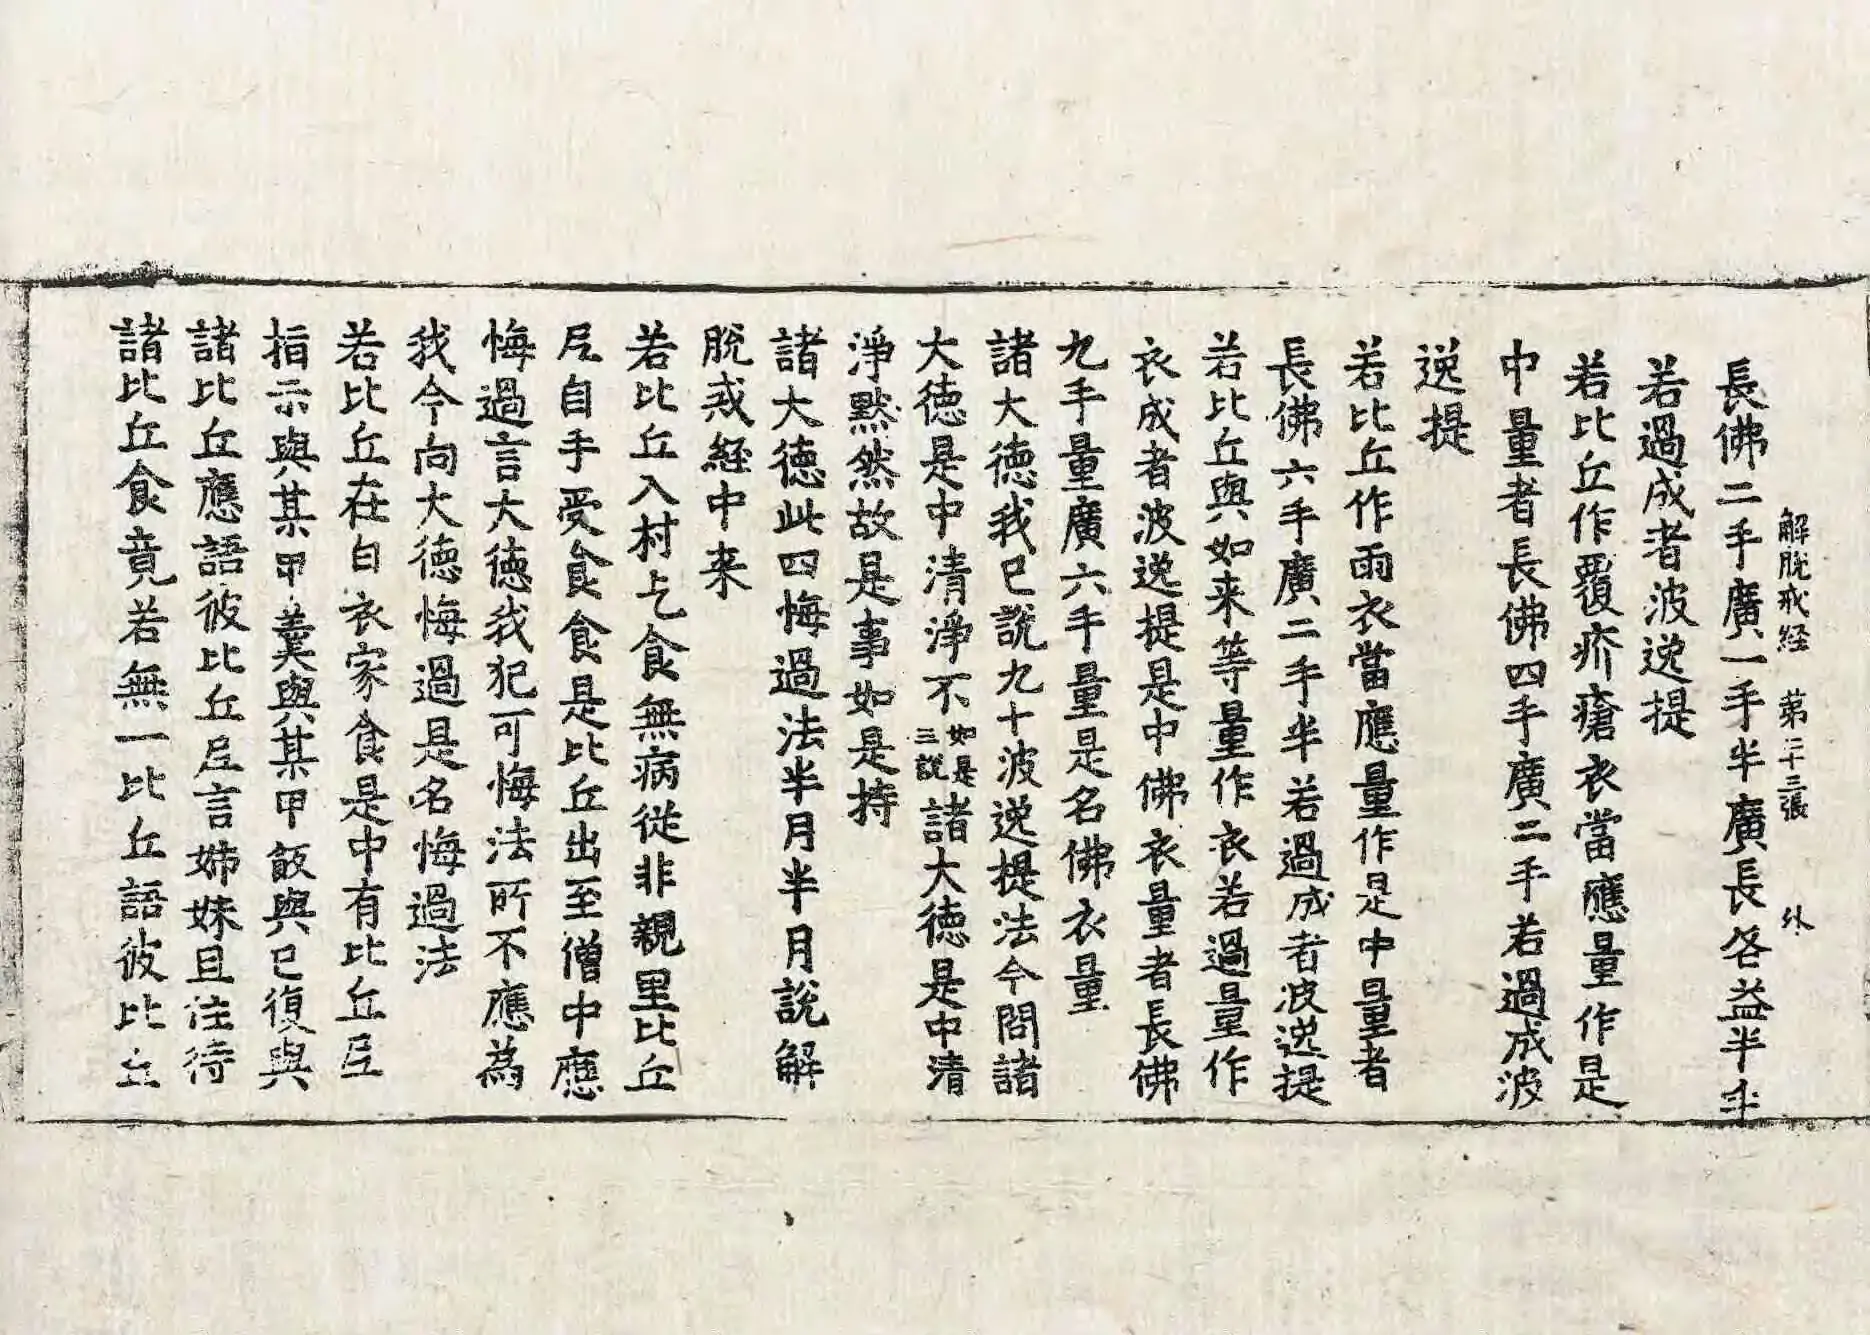 解脱戒経 苐二十三張 外
長佛二手廣一手半廣長各益半手
若過成者波逸提
若比丘作覆疥瘡衣當應量作是
中量者長佛四手廣二手若過成波
逸提
若比丘作雨衣當應量作是中量者
長佛六手廣二手半若過成者波逸提
若比丘與如来等量作衣若過量作
衣成者波逸提是中佛衣量者長佛
九手量廣六手量是名佛衣量
諸大德我已說九十波逸提法今問諸
大德是中清淨不如是三說諸大德是中清
淨默然故是事如是持
諸大德此四悔過法半月半月說解
脫戒経中来
若比丘入村乞食無病從非親里比丘
尼自手受食食是比丘出至僧中應
悔過言大德我犯可悔法所不應為
我今向大德悔過是名悔過法
若比丘在白衣家食是中有比丘尼
指示與某甲羹與某甲飯與已復與
諸比丘應語彼比丘尼言姉妹且住待
諸比丘食竟若無一比丘語彼比丘